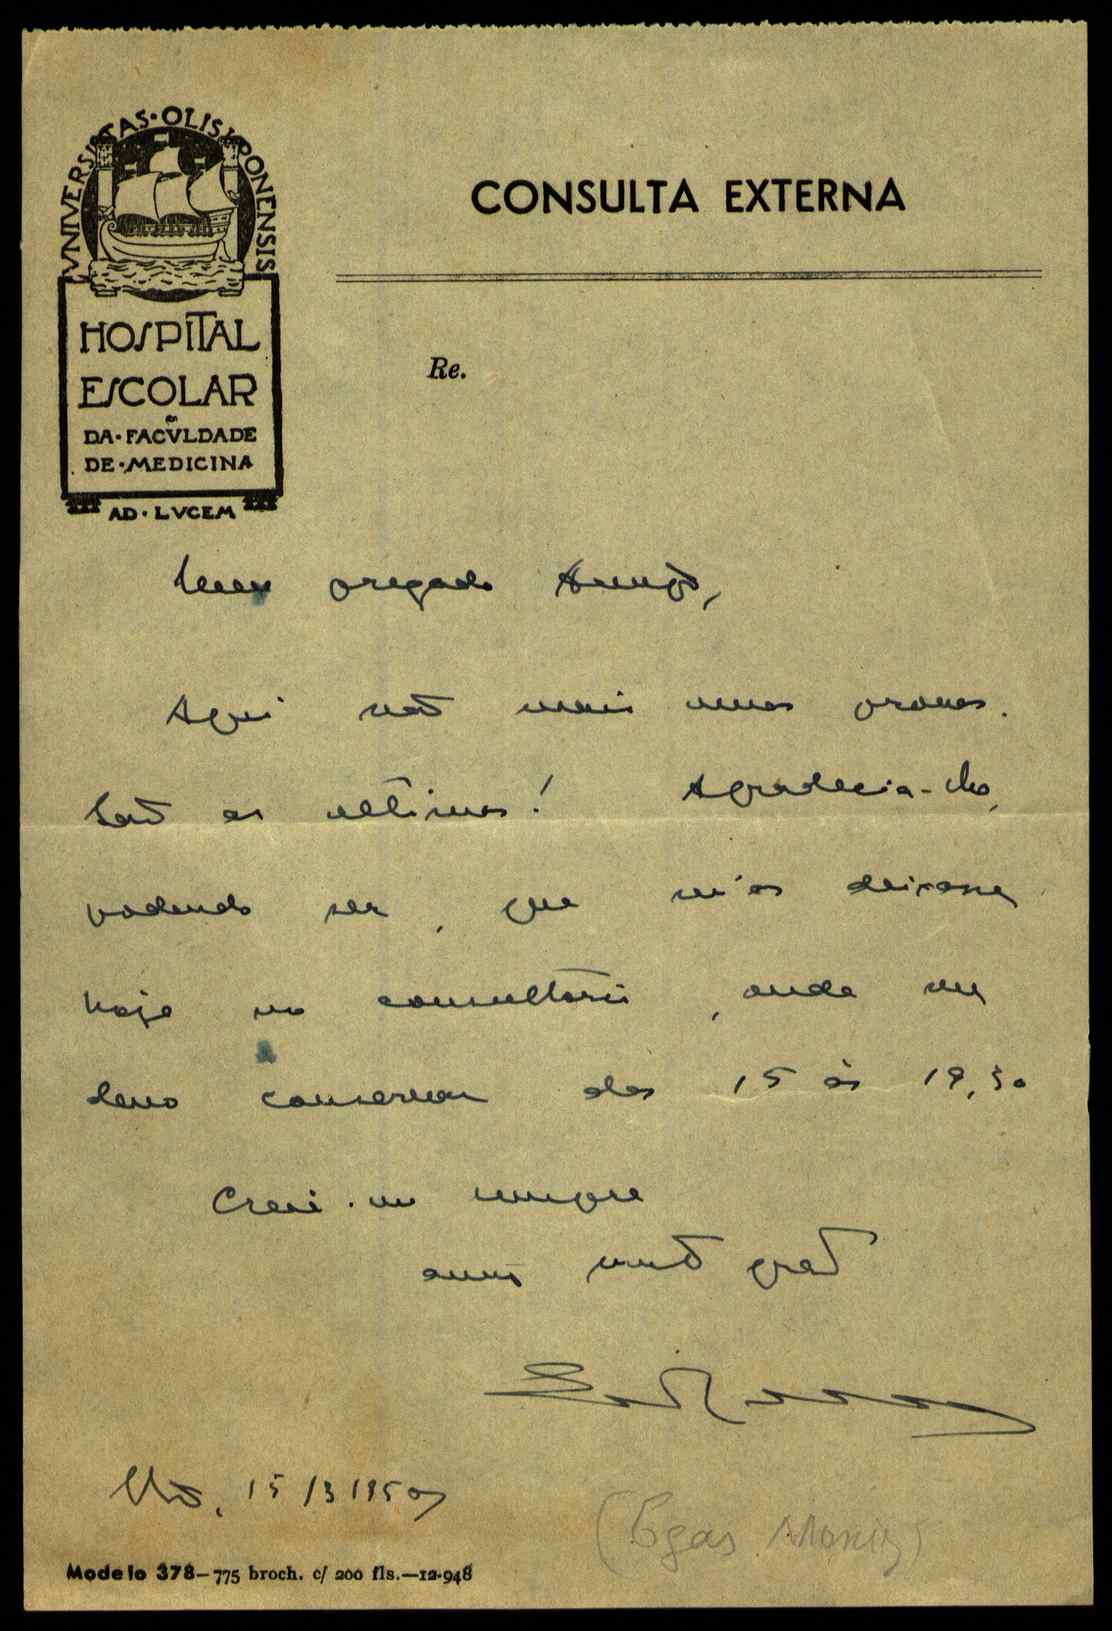 VNIVERSITAS · OLISIPONENSIS
HOSPITAL
ESCOLAR
DA · FACVLDADE
DE · MEDICINA
AD · LVCEM
CONSULTA EXTERNA
Re.
Meu prezado Amigo,
Aqui vão mais umas provas.
São as ultimas! Agradecia-lho,
podendo ser, que m'as deixasse
hoje no consultório, onde me
devo conservar das 15 ás 19,30
Creia-me sempre
amº muitº gratº
15/3/1950
(Egas Moniz)
Modelo 378—775 broch. c/ 200 fls.—12-948